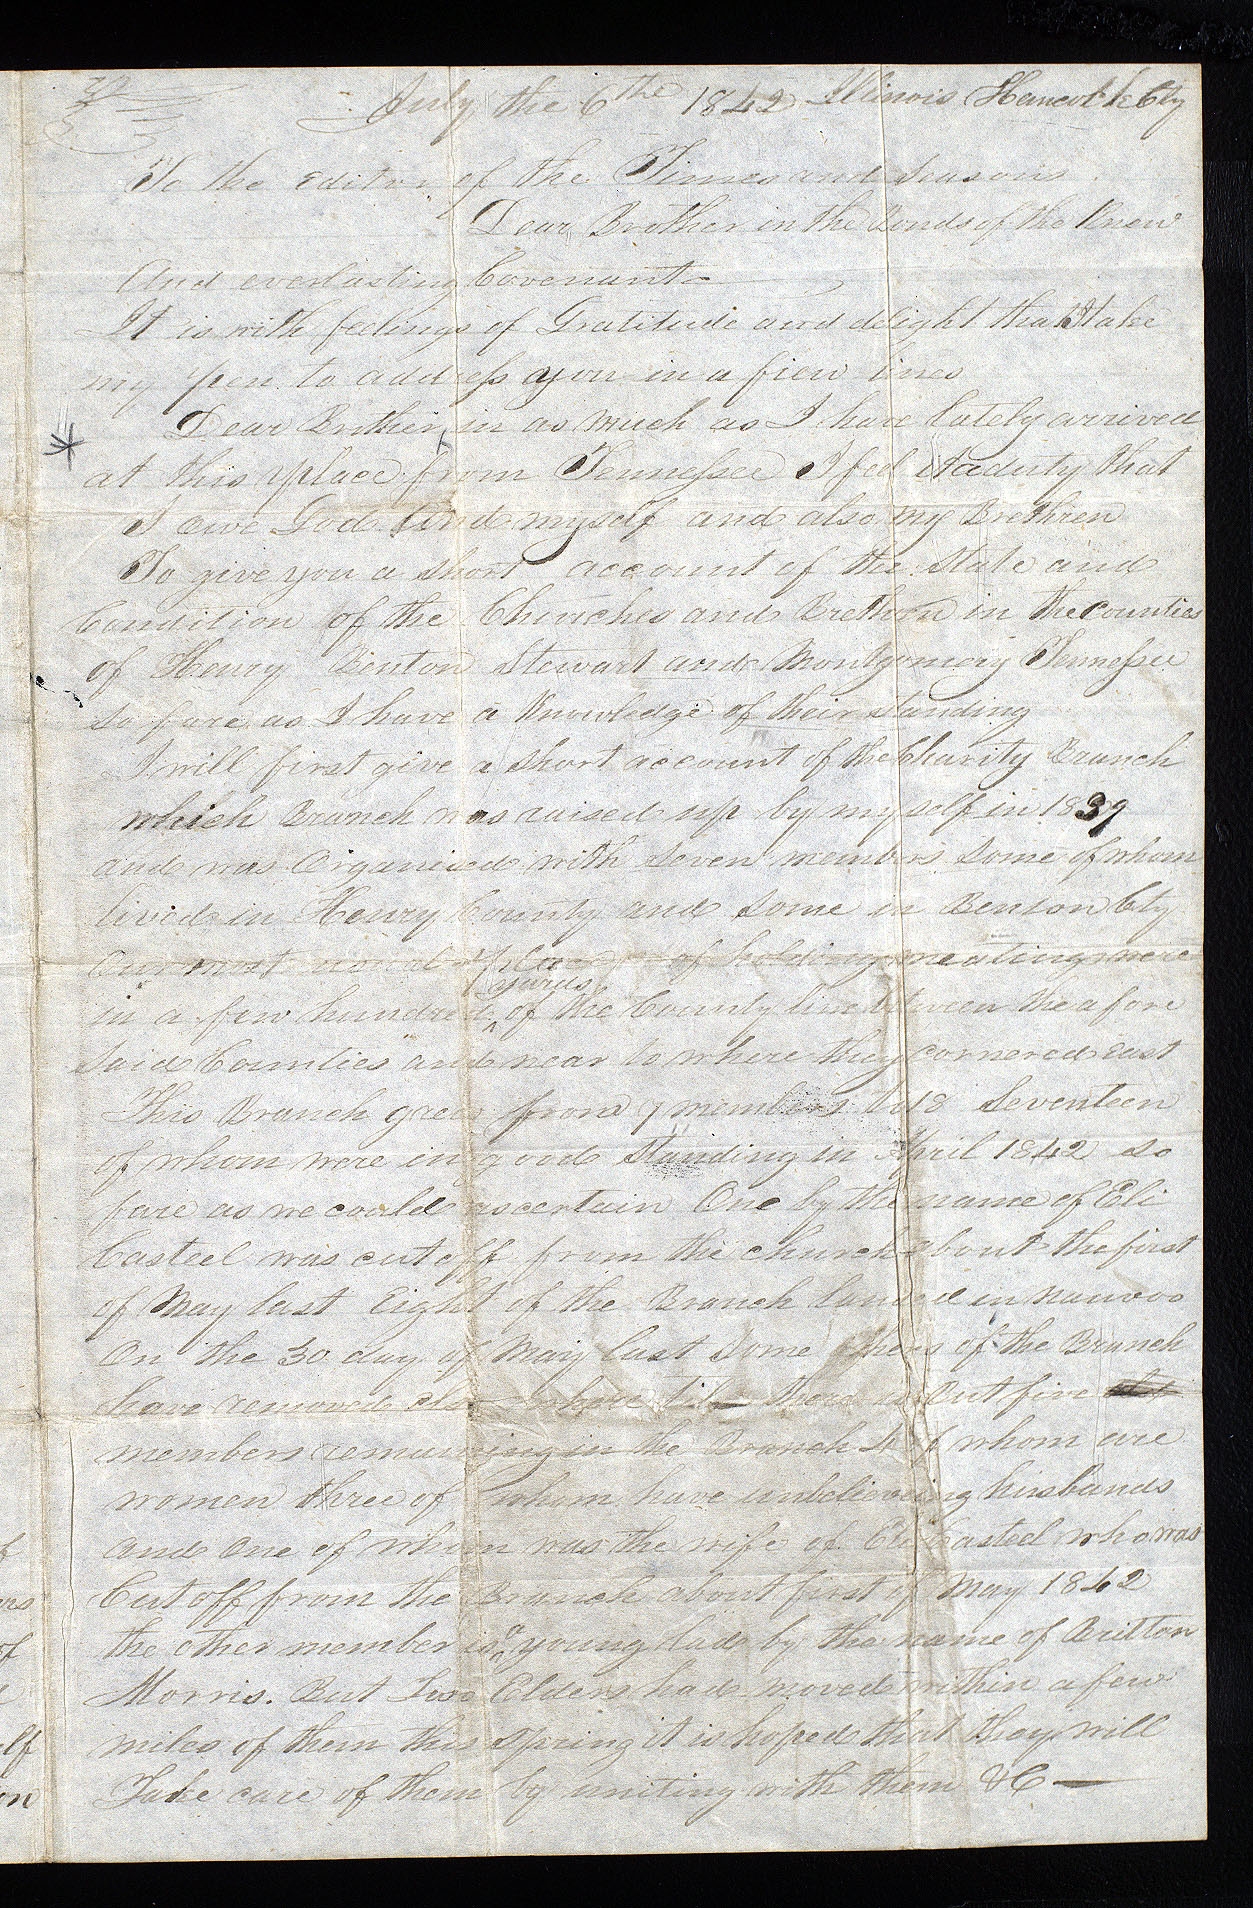 July the 6th 1842 Illinois Hancock Cty
To the Editor of the Times and Seasons
Dear Brother in the Bonds of the Knew
And everlasting Covenant
It is with feelings of Gratitude and delight that I take
my pen to address you in a fiew lines
Dear Brother, in as much as I have lately arrived
at this place from Tennessee I feel it a duty that
I owe God and myself and also my Brethren
To give you a short account of the State and
Condition of the Churches and Brethren in the counties
of Henry Benton Stewart and Montgomery Tennessee
So fare as I have a Knowledge of their standing
I will first give a short account of the Charity Branch
which Branch was raised up by myself in 1839
and was Organised with seven members some of whom
lived in Henry County and some in Benton Cty
Our most usual places of holding meatings were
in a few hundred yards of the County line between the afore
Said Counties and near to where they cornered east
This Branch grew from 7 members to 18 Seventeen
of whom were in good Standing in April 1842 so
fare as we could ascertain One by the name of Eli
Casteel was cut off from the church about the first
of May last Eight of the Branch landed in Nauvoo
On the 30 day of May last Some others of the Branch
have removed else where til there is But five
members remaining in the Branch 4 of whom are
women three of whom have unbelieveing husbands
and one of whom was the wife of Eli Casteel who was
Cut off from the Branch about first of May 1842
the other member is a young lad by the name of Britton
Morris. But Two Elders had moved within a few
miles of them this Spring it is hoped that they will
Take care of them by uniting with them &C
of
ers
of
elf
on